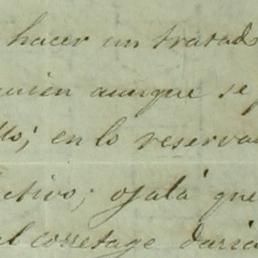 hacer un tratad
quien aunque se
en lo reserva
ctivo; ojalá que
el corretage daria